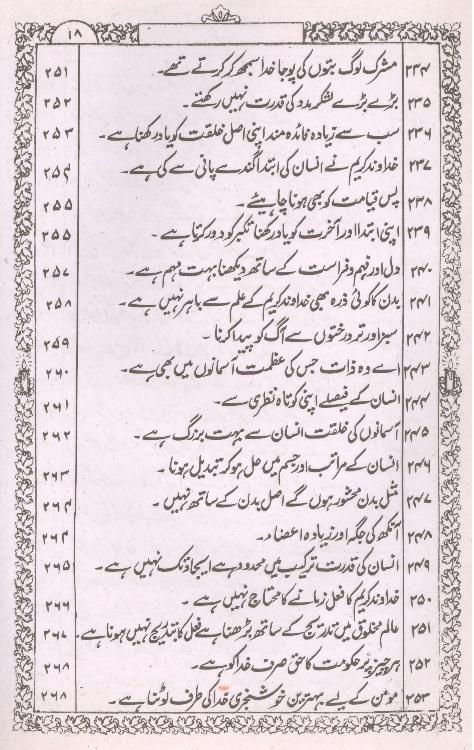 ۱۸
۲۳۴ مشرک لوگ بتوں کی پوجا خدا سمجھ کر کرتے تھے۔ ۲۵۱
۲۳۵ بڑے بڑے لشکر مدد کی قدرت نہیں رکھتے۔ ۲۵۲
۲۳۶ سب سے زیادہ فائدہ مند اپنی اصل خلقت کو یاد رکھنا ہے۔ ۲۵۳
۲۳۷ خداوند کریم نے انسان کی ابتدا گندے پانی سے کی ہے۔ ۲۵۴
۲۳۸ پس قیامت کو بھی ہونا چاہیئے۔ ۲۵۵
۲۳۹ اپنی ابتدا اور آخرت کو یاد رکھنا تکبر کو دور کرتا ہے۔ ۲۵۵
۲۴۰ دل اور فہم و فراست کے ساتھ دیکھنا بہت مہم ہے۔ ۲۵۷
۲۴۱ بدن کا کوئی ذرہ بھی خداوند کریم کے علم سے باہر نہیں ہے۔ ۲۵۸
۲۴۲ سبز اور تر درختوں سے آگ کو پیدا کرنا۔ ۲۵۹
۲۴۳ اے وہ ذات جس کی عظمت آسمانوں میں بھی ہے۔ ۲۶۰
۲۴۴ انسان کے فیصلے اپنی کوتاہ نظری سے۔ ۲۶۱
۲۴۵ آسمانوں کی خلقت انسان سے بہت بزرگ ہے۔ ۲۶۲
۲۴۶ انسان کے مراتب اور جسم میں حل ہو کر تبدیل ہونا۔ ۲۶۳
۲۴۷ مثل بدن محشور ہوں گے اصل بدن کے ساتھ نہیں۔ ۲۶۴
۲۴۸ آنکھ کی جگہ اور زیادہ اعضاء۔ ۲۶۴
۲۴۹ انسان کی قدرت ترکیب میں محدود ہے ایجاد تک نہیں ہے۔ ۲۶۵
۲۵۰ خداوند کریم کا فعل زمانے کا محتاج نہیں ہے۔ ۲۶۶
۲۵۱ عالم مخلوق میں تدریج کے ساتھ بڑھنا ہے فعل کا بتدریج نہیں ہونا ہے۔ ۲۶۷
۲۵۲ ہر چیز پر حکومت کا حق صرف خدا کو ہے۔ ۲۶۸
۲۵۳ مومن کے لیے بہترین خوشخبری خدا کی طرف لوٹنا ہے۔ ۲۶۸